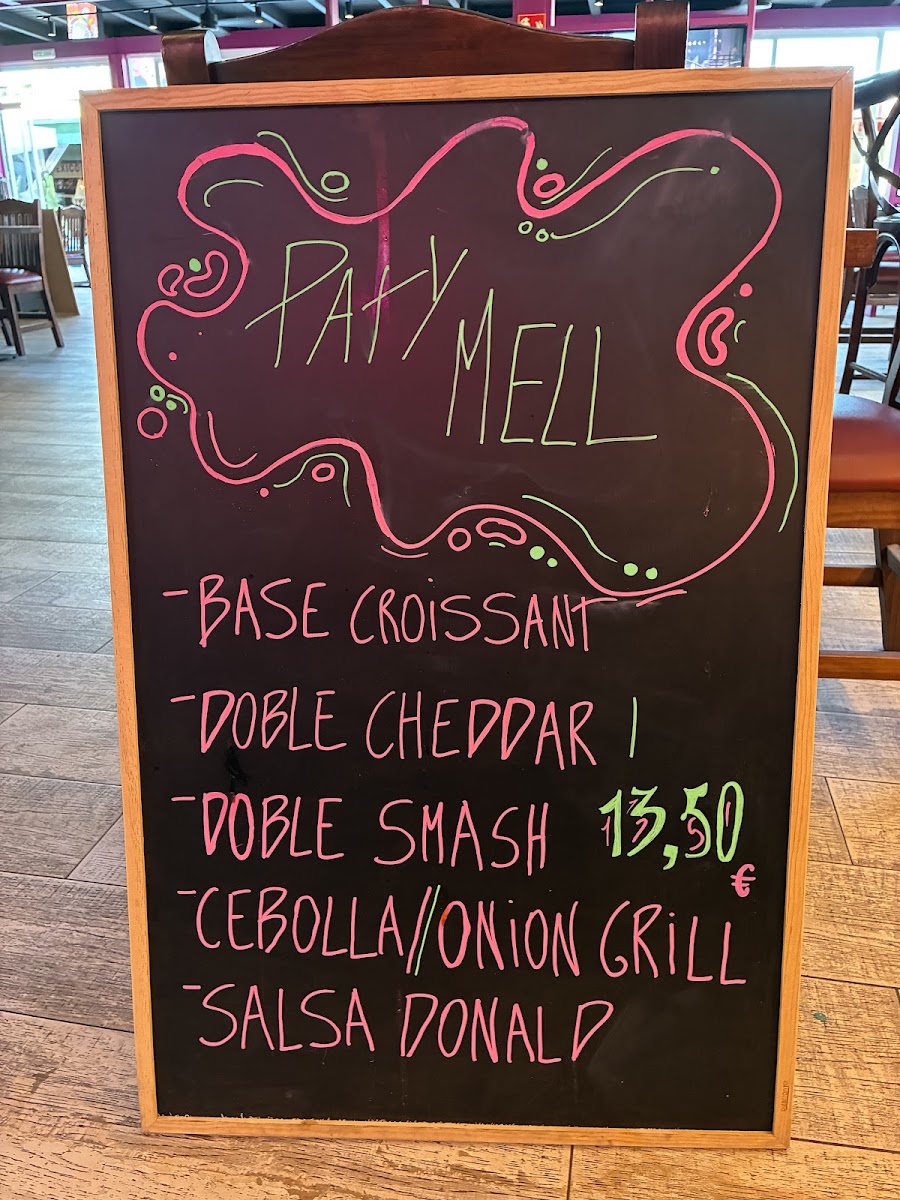 PATY
MELL
- BASE CROiSSANT
- DOBLE CHEDDAR
- DOBLE SMASH 13,50
€
- CEBOLLA//ONiON GRiLL
- SALSA DONALD